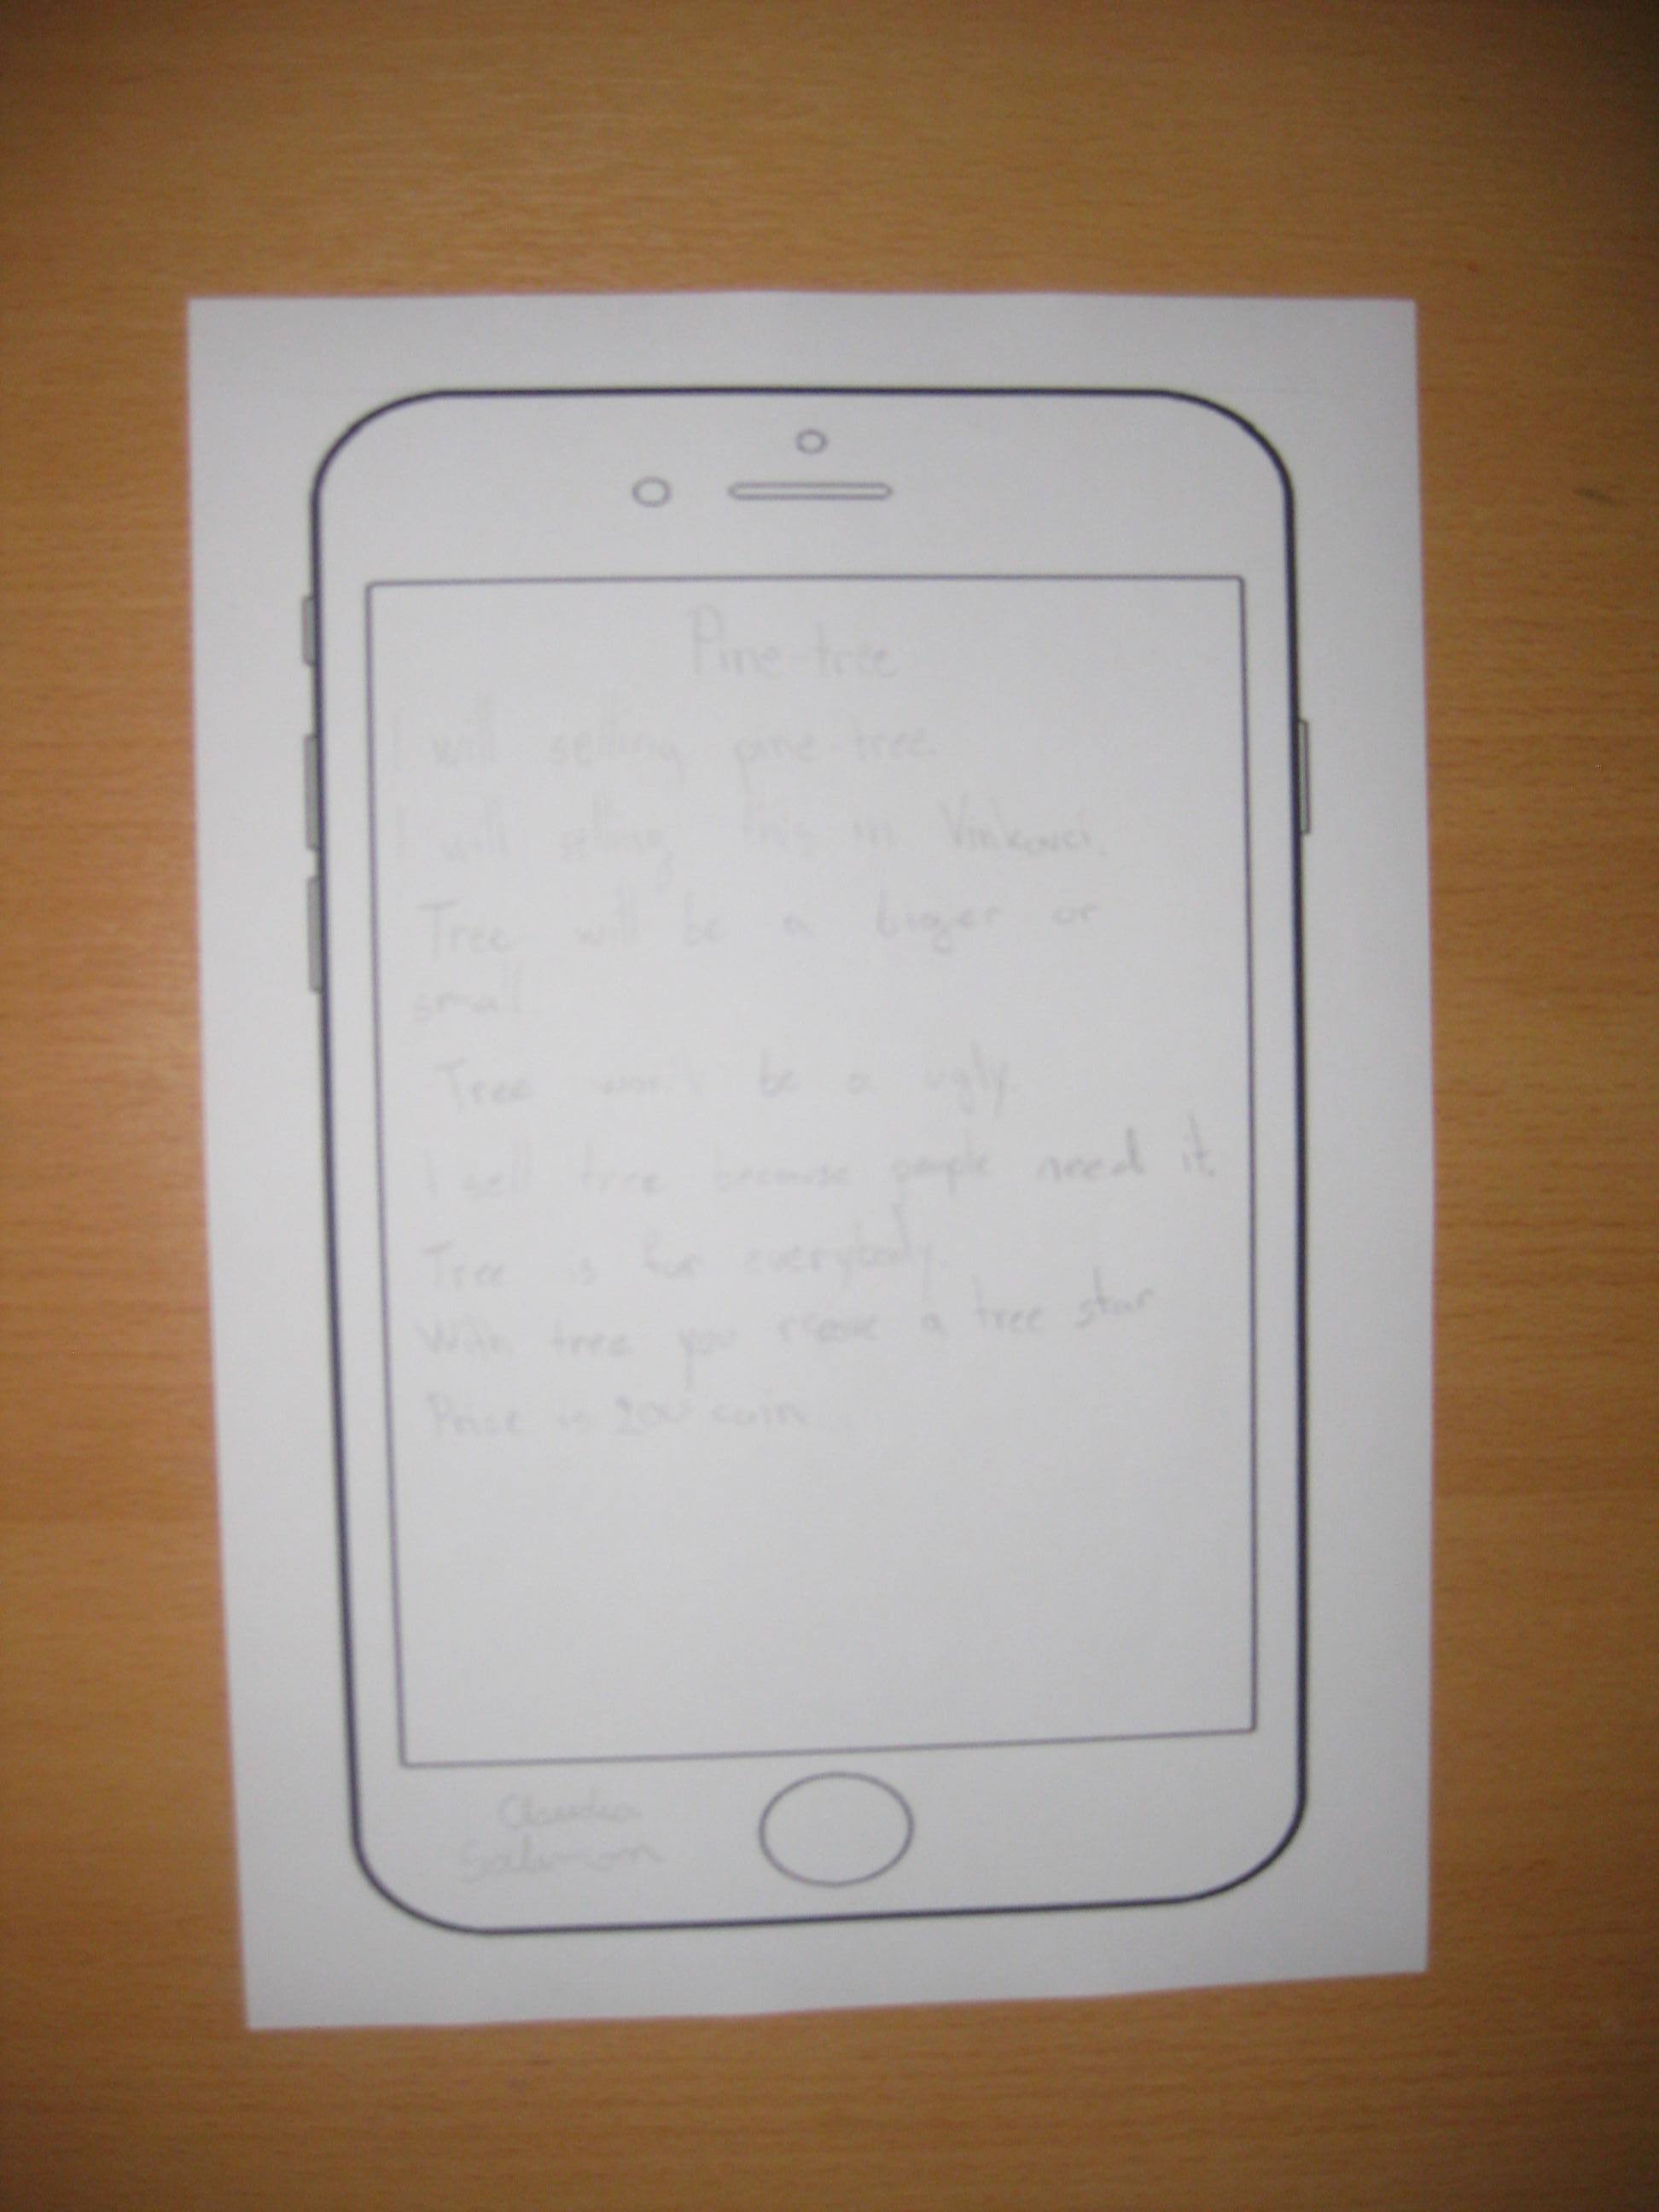 Pine-tree
I will selling pine-tree.
I will selling this in Vinkovci.
Tree will be a biger or
small
Tree won't be a ugly.
I sell tree because people need it.
Tree is for everybody.
With tree you a tree star
Price is coin
Claudia
Salamon